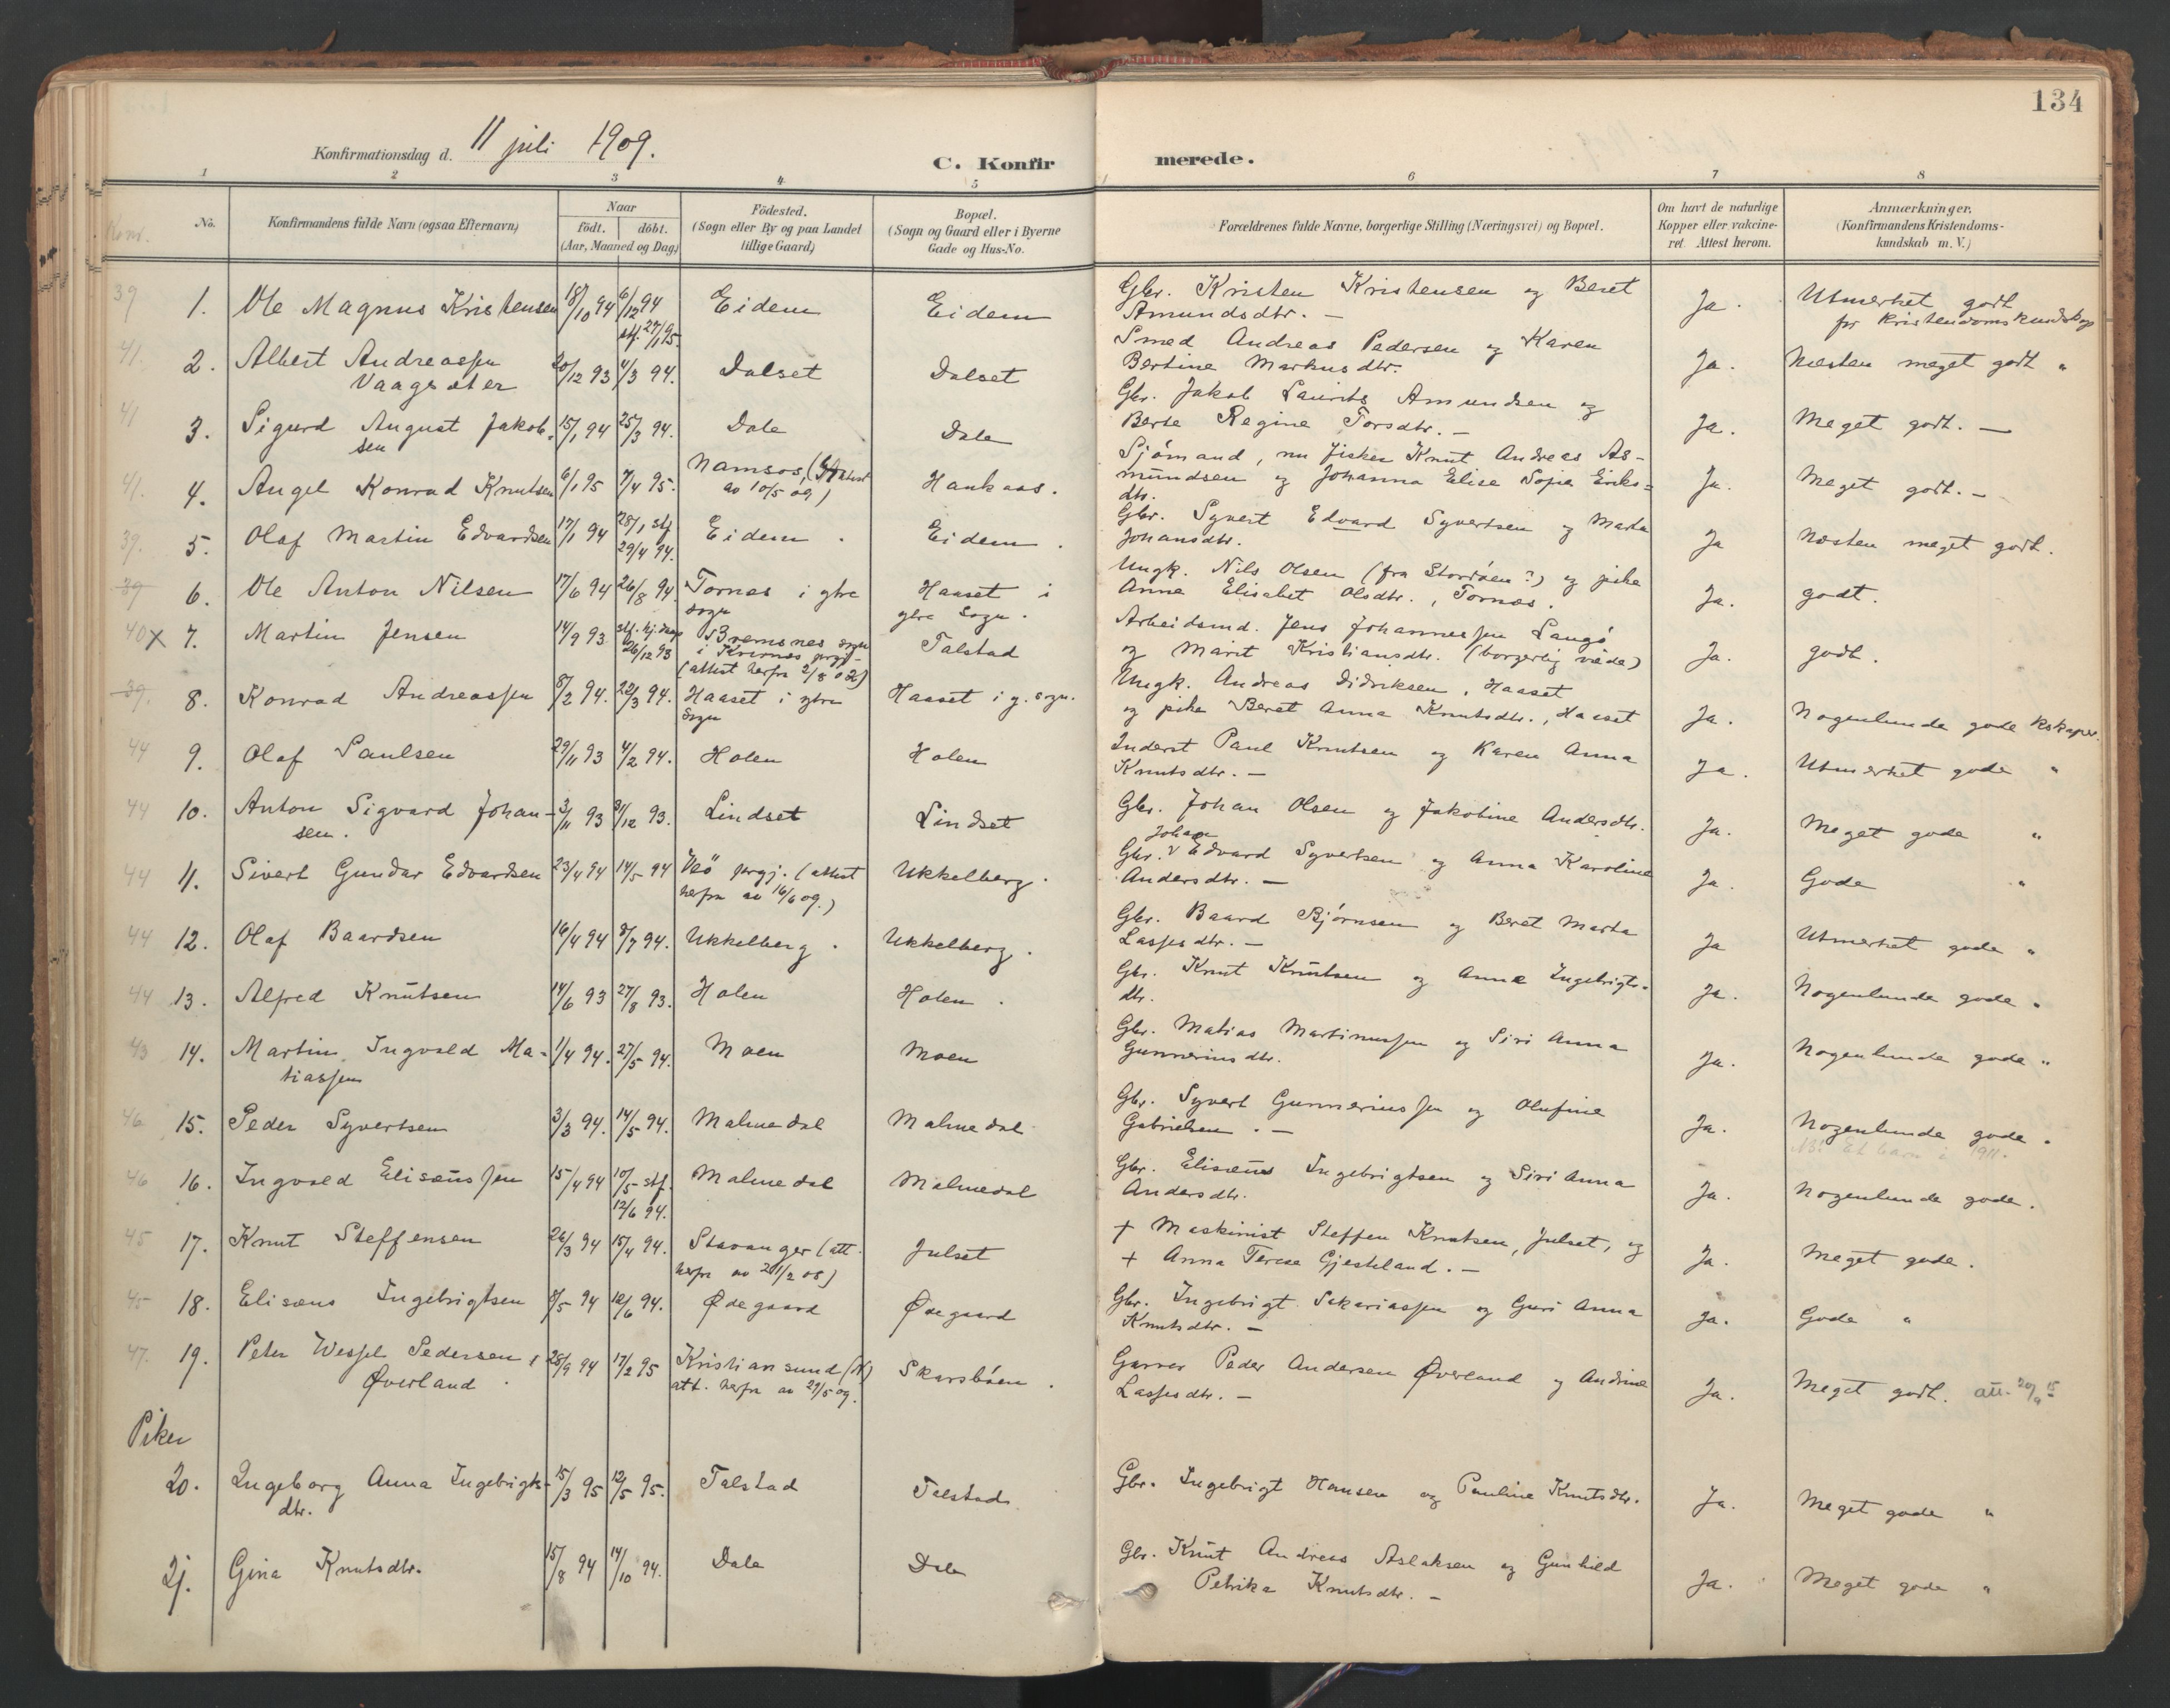 134
Konfirmationsdag d. 11 juli 1909.
C. Konfirmerede.
1 2 3 4 5 6 7 8
No. Konfirmandens fulde Navn (ogsaa Efternavn) Naar födt. döbt. (Aar, Maaned og Dag.) Födested. (Sogn eller By og paa Landet tillige Gaard) Bopæl. (Sogn og Gaard eller i Byerne Gade og Hus-No. Forældrenes fulde Navne, borgerlige Stilling (Næringsvei) og Bopæl. Om havt de naturlige Kopper eller vakcineret. Attest herom. Anmærkninger. (Konfirmandens Kristendomskundskab m. V.)
39 1. Ole Magnus Kristensen 18/10 94 6/12 94 stf. 27/1 95. Eidem Eidem Gbr. Kristen Kristensen og Beret Amundsdtr. — Ja. Utmerket godt for kristendomskundskap
41. 2. Albert Andreassen Vaagsæter 20/12 93 4/3 94. Dalset Dalset Smed Andreas Pedersen og Karen Bertine Markusdtr. Ja. Næsten meget godt "
41 3. Sigurd August Jakobsen 15/1 94 25/3 94. Dale Dale Gbr. Jakob Laurits Amundsen og Berte Regine Torsdtr. — Ja. Meget godt. —
41. 4. Angel Konrad Knutsen 6/1 95 7/4 95. Namsos, (attest av 10/5 09) Haukaas. Sjømand, nu fisker Knut Andreas Asmundsen og Johanna Elise Sofie Eriksdtr. Ja. Meget godt. —
39. 5. Olaf Martin Edvardsen 17/1 94 28/1 stf 29/4 94. Eidem. Eidem. Gbr. Syvert Edvard Syvertsen og Marta Johansdtr. Ja Næsten meget godt.
39 6. Ole Anton Nilsen 17/6 94 26/8 94. Tornes i ytre sogn Haaset i ytre sogn. Ungk. Nils Olsen (fra Storöen?) og pike Anne Elisabet Olsdtr., Tornes. Ja. godt.
40 x 7. Martin Jensen 14/9 93 stf. hj.døpt 26/12 93 Bremsnes sogn i Kvernes prgj. (attest herfra 2/8 02) Talstad Arbeidsmd. Jens Johannessen Langö og Marit Kristiansdtr. (borgerlig viede) Ja. godt.
39. 8. Konrad Andreassen 8/2 94. 22/3 94. Haaset i ytre sogn Haaset i y. sogn. Ungk. Andreas Didriksen, Haaset og pike Beret Anna Knutsdtr., Haaset Ja. Nogenlunde gode kskaper.
44 9. Olaf Paulsen 29/11 93 4/2 94. Holen Holen Inderst Paul Knutsen og Karen Anna Knutsdtr. — Ja. Utmerket gode "
44 10. Anton Sigvard Johansen. 3/11 93 31/12 93. Lindset Lindset Gbr. Johan Olsen og Jakobine Andersdtr. Ja. Meget gode "
44 11. Sivert Gunder Edvardsen 23/4 94 14/5 94 Veö prgj. (attest herfra av 16/6 09.) Ukkelberg. Gbr. Johan Edvard Syvertsen og Anna Karoline Andersdtr. — Ja. Gode "
44 12. Olaf Baardsen 16/4 94 8/7 94. Ukkelberg. Ukkelberg. Gbr. Baard Björnsen og Beret Marta Lassesdtr. — Ja Utmerket gode "
44 13. Alfred Knutsen 14/6 93 27/8 93. Holen Holen. Gbr. Knut Knutsen og Anne Ingebrigtsdtr. Ja. Nogenlunde gode "
43 14. Martin Ingvald Matiassen 1/4 94. 27/5 94. Moen Moen Gbr. Matias Martinussen og Siri Anna Gunneriusdtr. Ja. Nogenlunde gode "
46 15. Peder Syvertsen 3/3 94. 14/5 94. Malmedal Malmedal Gbr. Syvert Gunneriussen og Olufine Gabrielsen. — Ja. Nogenlunde gode "
NB! Et barn i 1911.
46 16. Ingvald Elisæussen 15/4 94 10/5 stf. 12/6 94. Malmedal Malmedal Gbr. Elisæus Ingebrigtsen og Siri Anna Andersdtr. Ja. Nogenlunde gode.
45 17. Knut Steffensen 26/3 94 15/4 94. Stavanger (att. herfra av 21/2 08) Julset † Maskinist Steffen Knutsen, Julset, og † Anna Terese Gjesteland. — Ja. Meget gode.
45 18. Elisæus Ingebrigtsen 8/5 94 12/6 94. Ødegaard Ødegaard Gbr. Ingebrigt Sakariassen og Guri Anna Knutsdtr. — Ja. Gode "
47. 19. Peter Wessel Pedersen Øverland. 28/9 94 17/2 95 Kristiansund (N) att. herfra av 29/5 09. Skarsböen. Garver Peder Andersen Øverland og Andrine Lassesdtr. — Ja. Meget godt. att. 20/9 15
Piker
20. Ingeborg Anna Ingebrigtsdtr. 15/3 95 12/5 95. Talstad Talstad. Gbr. Ingebrigt Hansen og Pauline Knutsdtr. Ja. Meget gode "
21. Gina Knutsdtr. 15/8 94 14/10 94. Dale Dale Gbr. Knut Andreas Aslaksen og Gunhild Petrika Knutsdtr. — Ja. Meget gode "